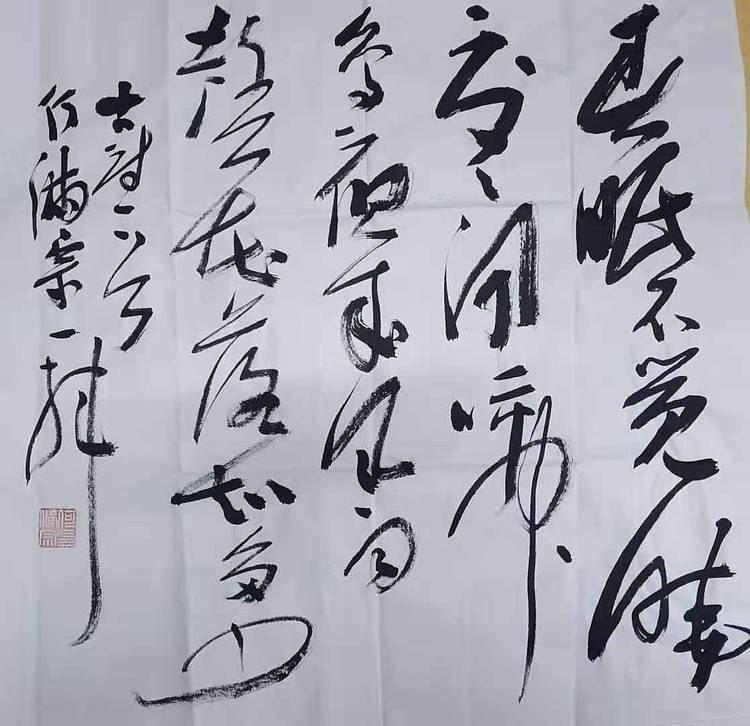 春眠不觉晓
处处闻啼
鸟夜来风雨
声花落知多少
古诗一首
何满宗